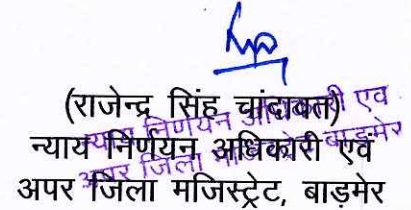 (राजेन्द्र सिंह चांदावत)
न्याय निर्णयन अधिकारी एवं
अपर जिला मजिस्ट्रेट, बाड़मेर
न्याय निर्णयन अधिकारी एव
अपर जिला बाड़मेर